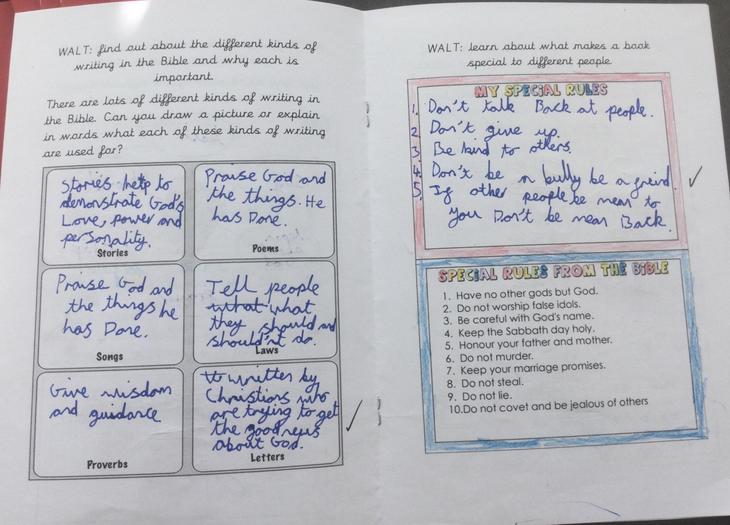 WALT: find out about the different kinds of
writing in the Bible and why each is
important.
There are lots of different kinds of writing in
the Bible. Can you draw a picture or explain
in words what each of these kinds of writing
are used for?
Stories help to
demonstrate God's
Love, power and
personality.
Stories
Praise God and
the things. He
has Done.
Poems
Praise God and
the things he
has Done.
Songs
Tell people
what what
they should and
should'nt do.
Laws
Give wisdom
and guidance
Proverbs
written by
Christions who
are trying to get
the good news
about God.
Letters
WALT: learn about what makes a book
special to different people.
MY SPECIAL RULES
1. Don't talk Back at people.
2. Don't give up.
3. Be kind to others.
4. Don't be a bully be a freind.
5. If other people be mean to
you Don't be mean Back.
SPECIAL RULES FROM THE BIBLE
1. Have no other gods but God.
2. Do not worship false idols.
3. Be careful with God's name.
4. Keep the Sabbath day holy.
5. Honour your father and mother.
6. Do not murder.
7. Keep your marriage promises.
8. Do not steal.
9. Do not lie.
10.Do not covet and be jealous of others